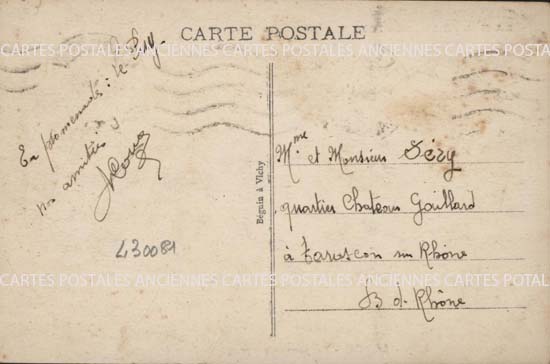 CARTE POSTALE
CARTES POSTALES ANCIENNES CARTES POSTALES ANCIENNES CARTES POSTALES
En promenade : Le Puy.
nos amitiés
430081
Béguin à Vichy
Mme et Monsieur Séry
quartier Chateau Gaillard
à Tarascon sur Rhône
B d. Rhône
CARTES POSTALES ANCIENNES CARTES POSTALES ANCIENNES CARTES POSTALES